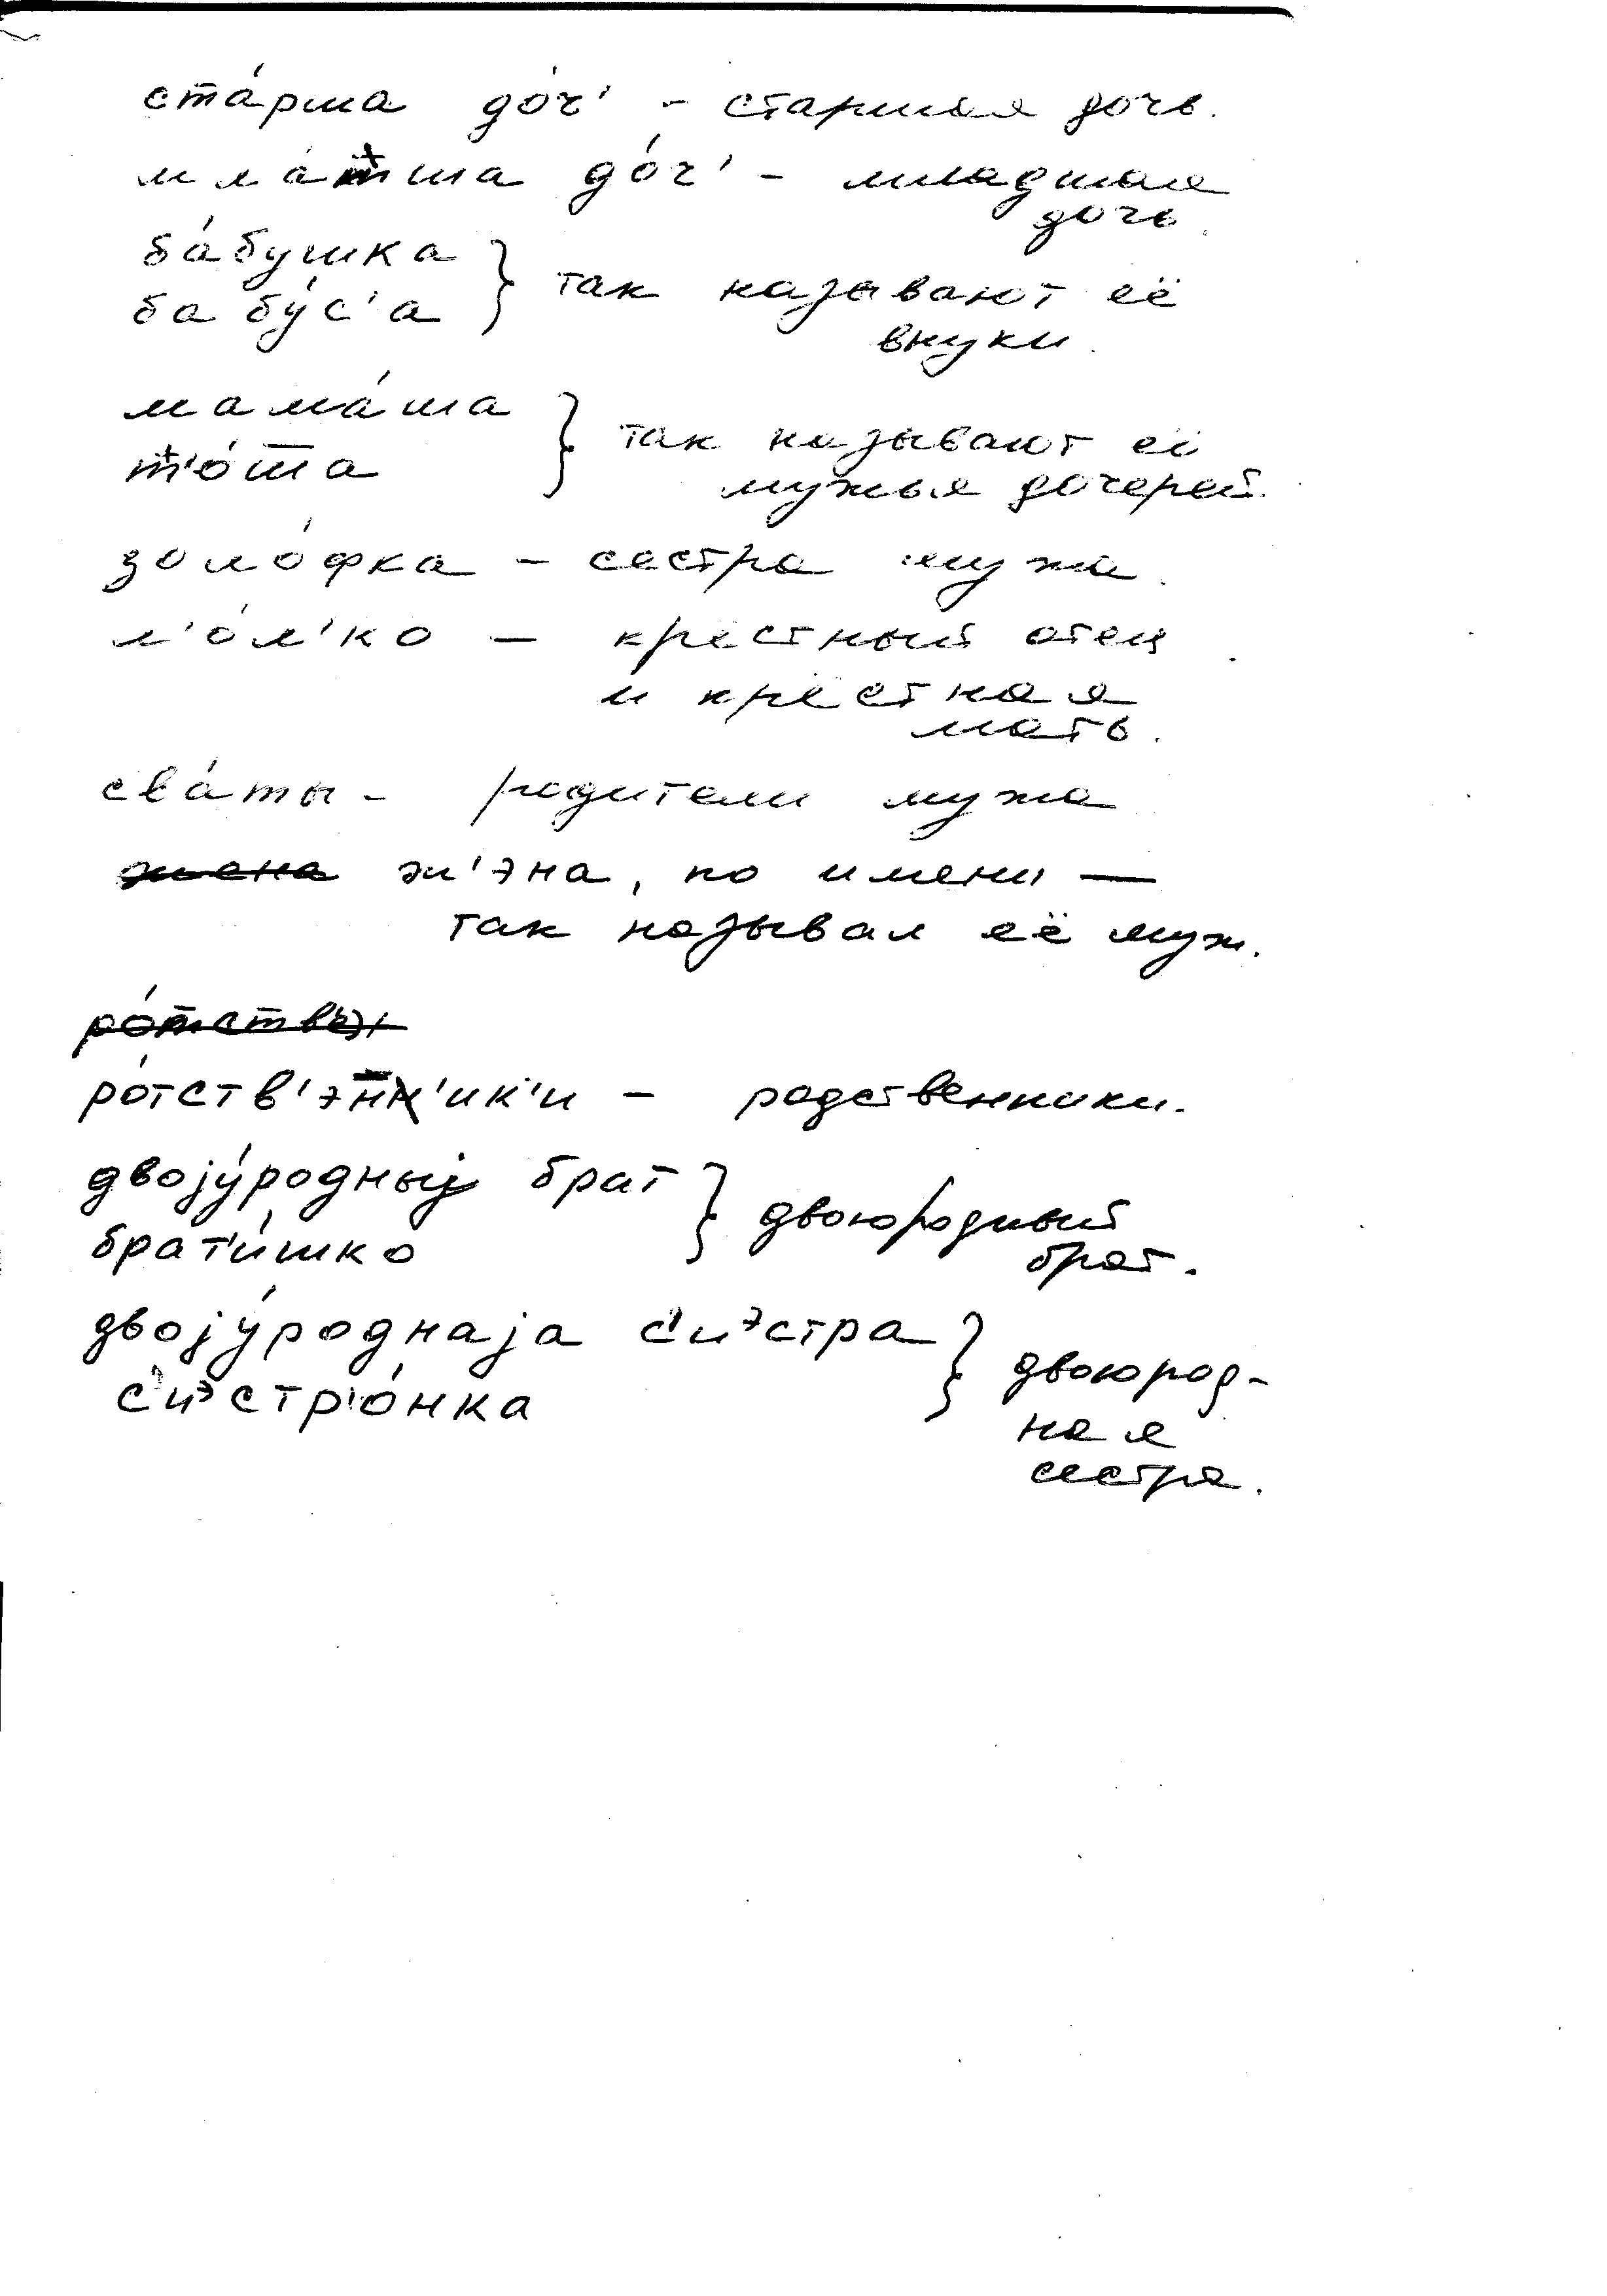 ста́рша до́ч' - старшая дочь.
мла́тша до́ч' - младшая
дочь.
ба́бушка } так называют её
бабу́с'а
внуки.
мама́ша } так называют её
т'о́т̅а мужья дочерей.
золо́фка - сестра мужа.
л'о́л'ко - крёстный отец
и крёстная
мать.
сва́ты - родители мужа
~~жена~~ ж'эна, по имени —
так называл её муж.
~~ро́тств'эн~~
ро́тств'эн̅'ик'и - родственники.
двоjу́родныj брат } двоюродный
брат'и́шко брат.
двоjу́роднаjа с'иэстра } двоюрод-
с'иэстр'о́нка
ная
сестра.